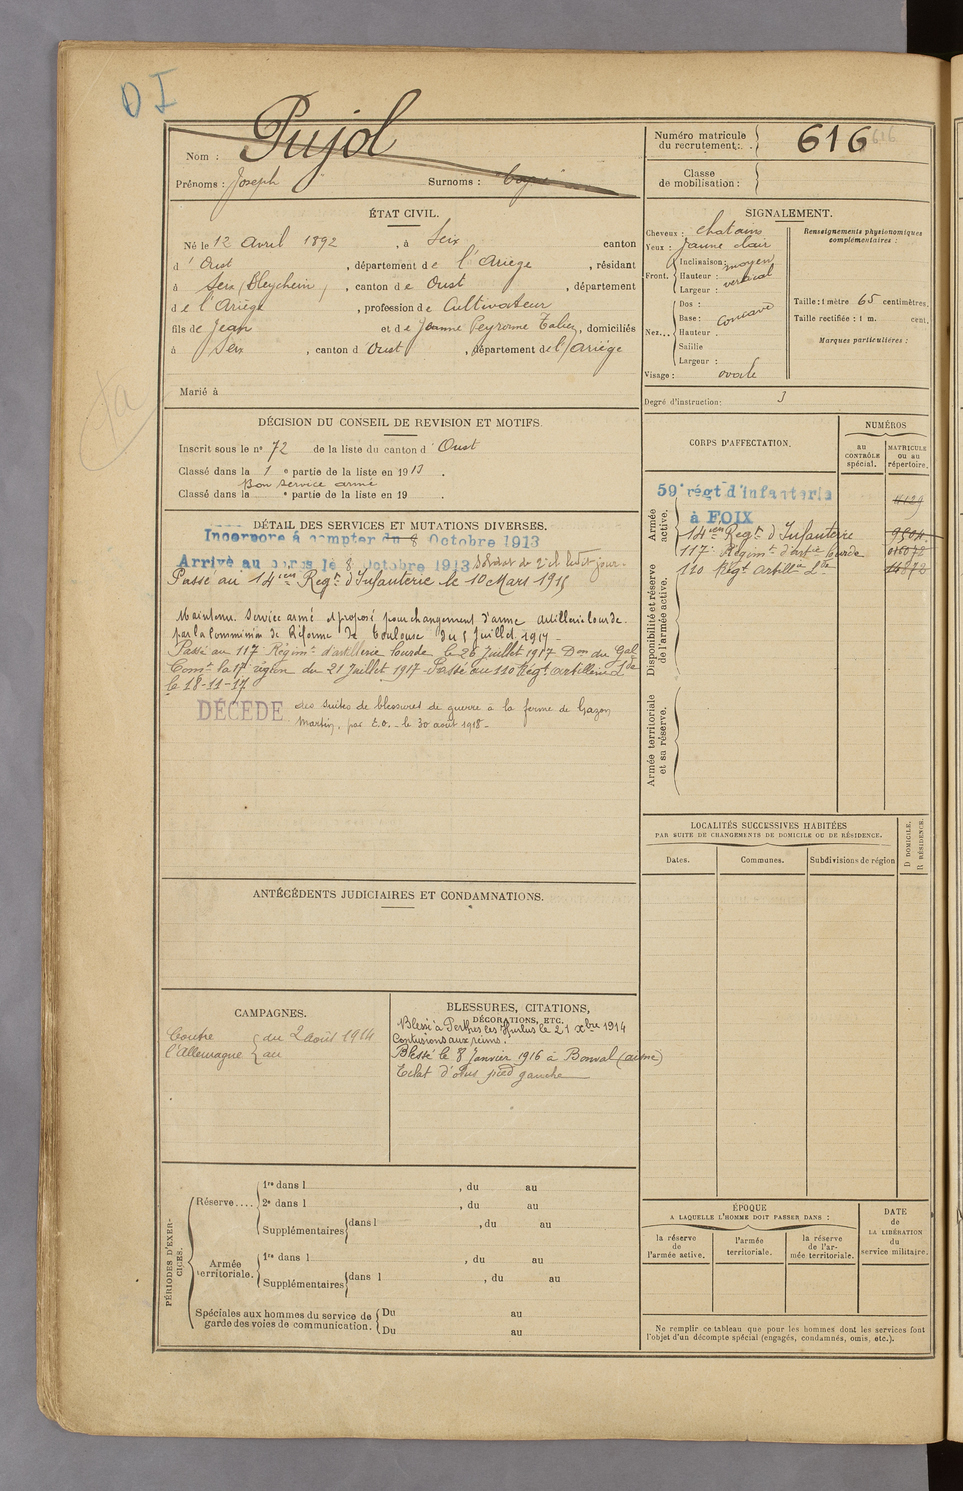 D I
Pujol
Nom :
Prénoms : Joseph Surnoms :
ÉTAT CIVIL.
Né le 12 Avril 1892, à Seix canton
d'Oust, département de l'Ariège, résidant
à Seix (Bleychein), canton de Oust, département
de l'Ariège, profession de Cultivateur
fils de Jean et de Jeanne Peyronne, domiciliés
à Seix, canton d'Oust, département de l'Ariége
Marié à
DÉCISION DU CONSEIL DE REVISION ET MOTIFS.
Inscrit sous le n° 72 de la liste du canton d'Oust
Classé dans la 1 e partie de la liste en 1913.
Bon service armé
Classé dans la e partie de la liste en 19 .
DÉTAIL DES SERVICES ET MUTATIONS DIVERSES.
Incorporé à compter du 8 Octobre 1913
Arrivé au corps le 8 Octobre 1913 Soldat de 2e cl ledit jour.
Passé au 14ieme Regt. d'Infanterie le 10 Mars 1915
Maintenu Service armé et proposé pour changement d'arme artillerie lourde
par la Commission de Réforme de Toulouse du 5 Juillet 1917 -
Passé au 117e Régimt d'artillerie lourde le 28 Juillet 1917 Don du Gal
Comt la 17e région du 21 Juillet 1917 - Passé au 110 Régt artillerie Lde
le 18-11-17
DÉCÉDÉ des suites de blessures de guerre à la ferme de Gazon
Martin, par E.O. - le 30 août 1918 -
ANTÉCÉDENTS JUDICIAIRES ET CONDAMNATIONS.
CAMPAGNES.
Contre l'Allemagne { du 2 Août 1914
au
BLESSURES, CITATIONS,
DÉCORATIONS, ETC.
Blessé à Perthes les Hurlus le 21 Xbre 1914
Contusions aux reins.
Blessé le 8 Janvier 1916 à Bonval (aisne)
Eclat d'obus pied gauche
PÉRIODES D'EXERCICES.
Réserve.... 1re dans l , du au
2e dans l , du au
Supplémentaires dans l , du au
Armée territoriale. 1re dans l , du au
Supplémentaires dans l , du au
Spéciales aux hommes du service de garde des voies de communication. Du au
Du au
Numéro matricule du recrutement : 616 616
Classe de mobilisation :
SIGNALEMENT.
Cheveux : chatains
Yeux : Jaune clair
Front. Inclinaison : moyen
Hauteur : vertical
Largeur :
Nez... Dos :
Base : Concave
Hauteur :
Saillie
Largeur :
Visage : ovale
Renseignements physionomiques complémentaires :
Taille : 1 mètre 65 centimètres.
Taille rectifiée : 1 m. cent.
Marques particulières :
Degré d'instruction : 3
CORPS D'AFFECTATION.
NUMÉROS
au CONTRÔLE spécial.
MATRICULE ou au répertoire.
Armée active.
59e régt d'infanterie
à FOIX
14ieme Regt d'Infanterie
117e Régimt d'artie lourde
110 Régt Artillie Lde
Disponibilité et réserve de l'armée active.
Armée territoriale et sa réserve.
LOCALITÉS SUCCESSIVES HABITÉES
PAR SUITE DE CHANGEMENTS DE DOMICILE OU DE RÉSIDENCE.
Dates. Communes. Subdivisions de région
D DOMICILE.
R RÉSIDENCE.
ÉPOQUE
A LAQUELLE L'HOMME DOIT PASSER DANS :
la réserve de l'armée active.
l'armée territoriale.
la réserve de l'armée territoriale.
DATE de LA LIBÉRATION du service militaire.
Ne remplir ce tableau que pour les hommes dont les services font
l'objet d'un décompte spécial (engagés, condamnés, omis, etc.).